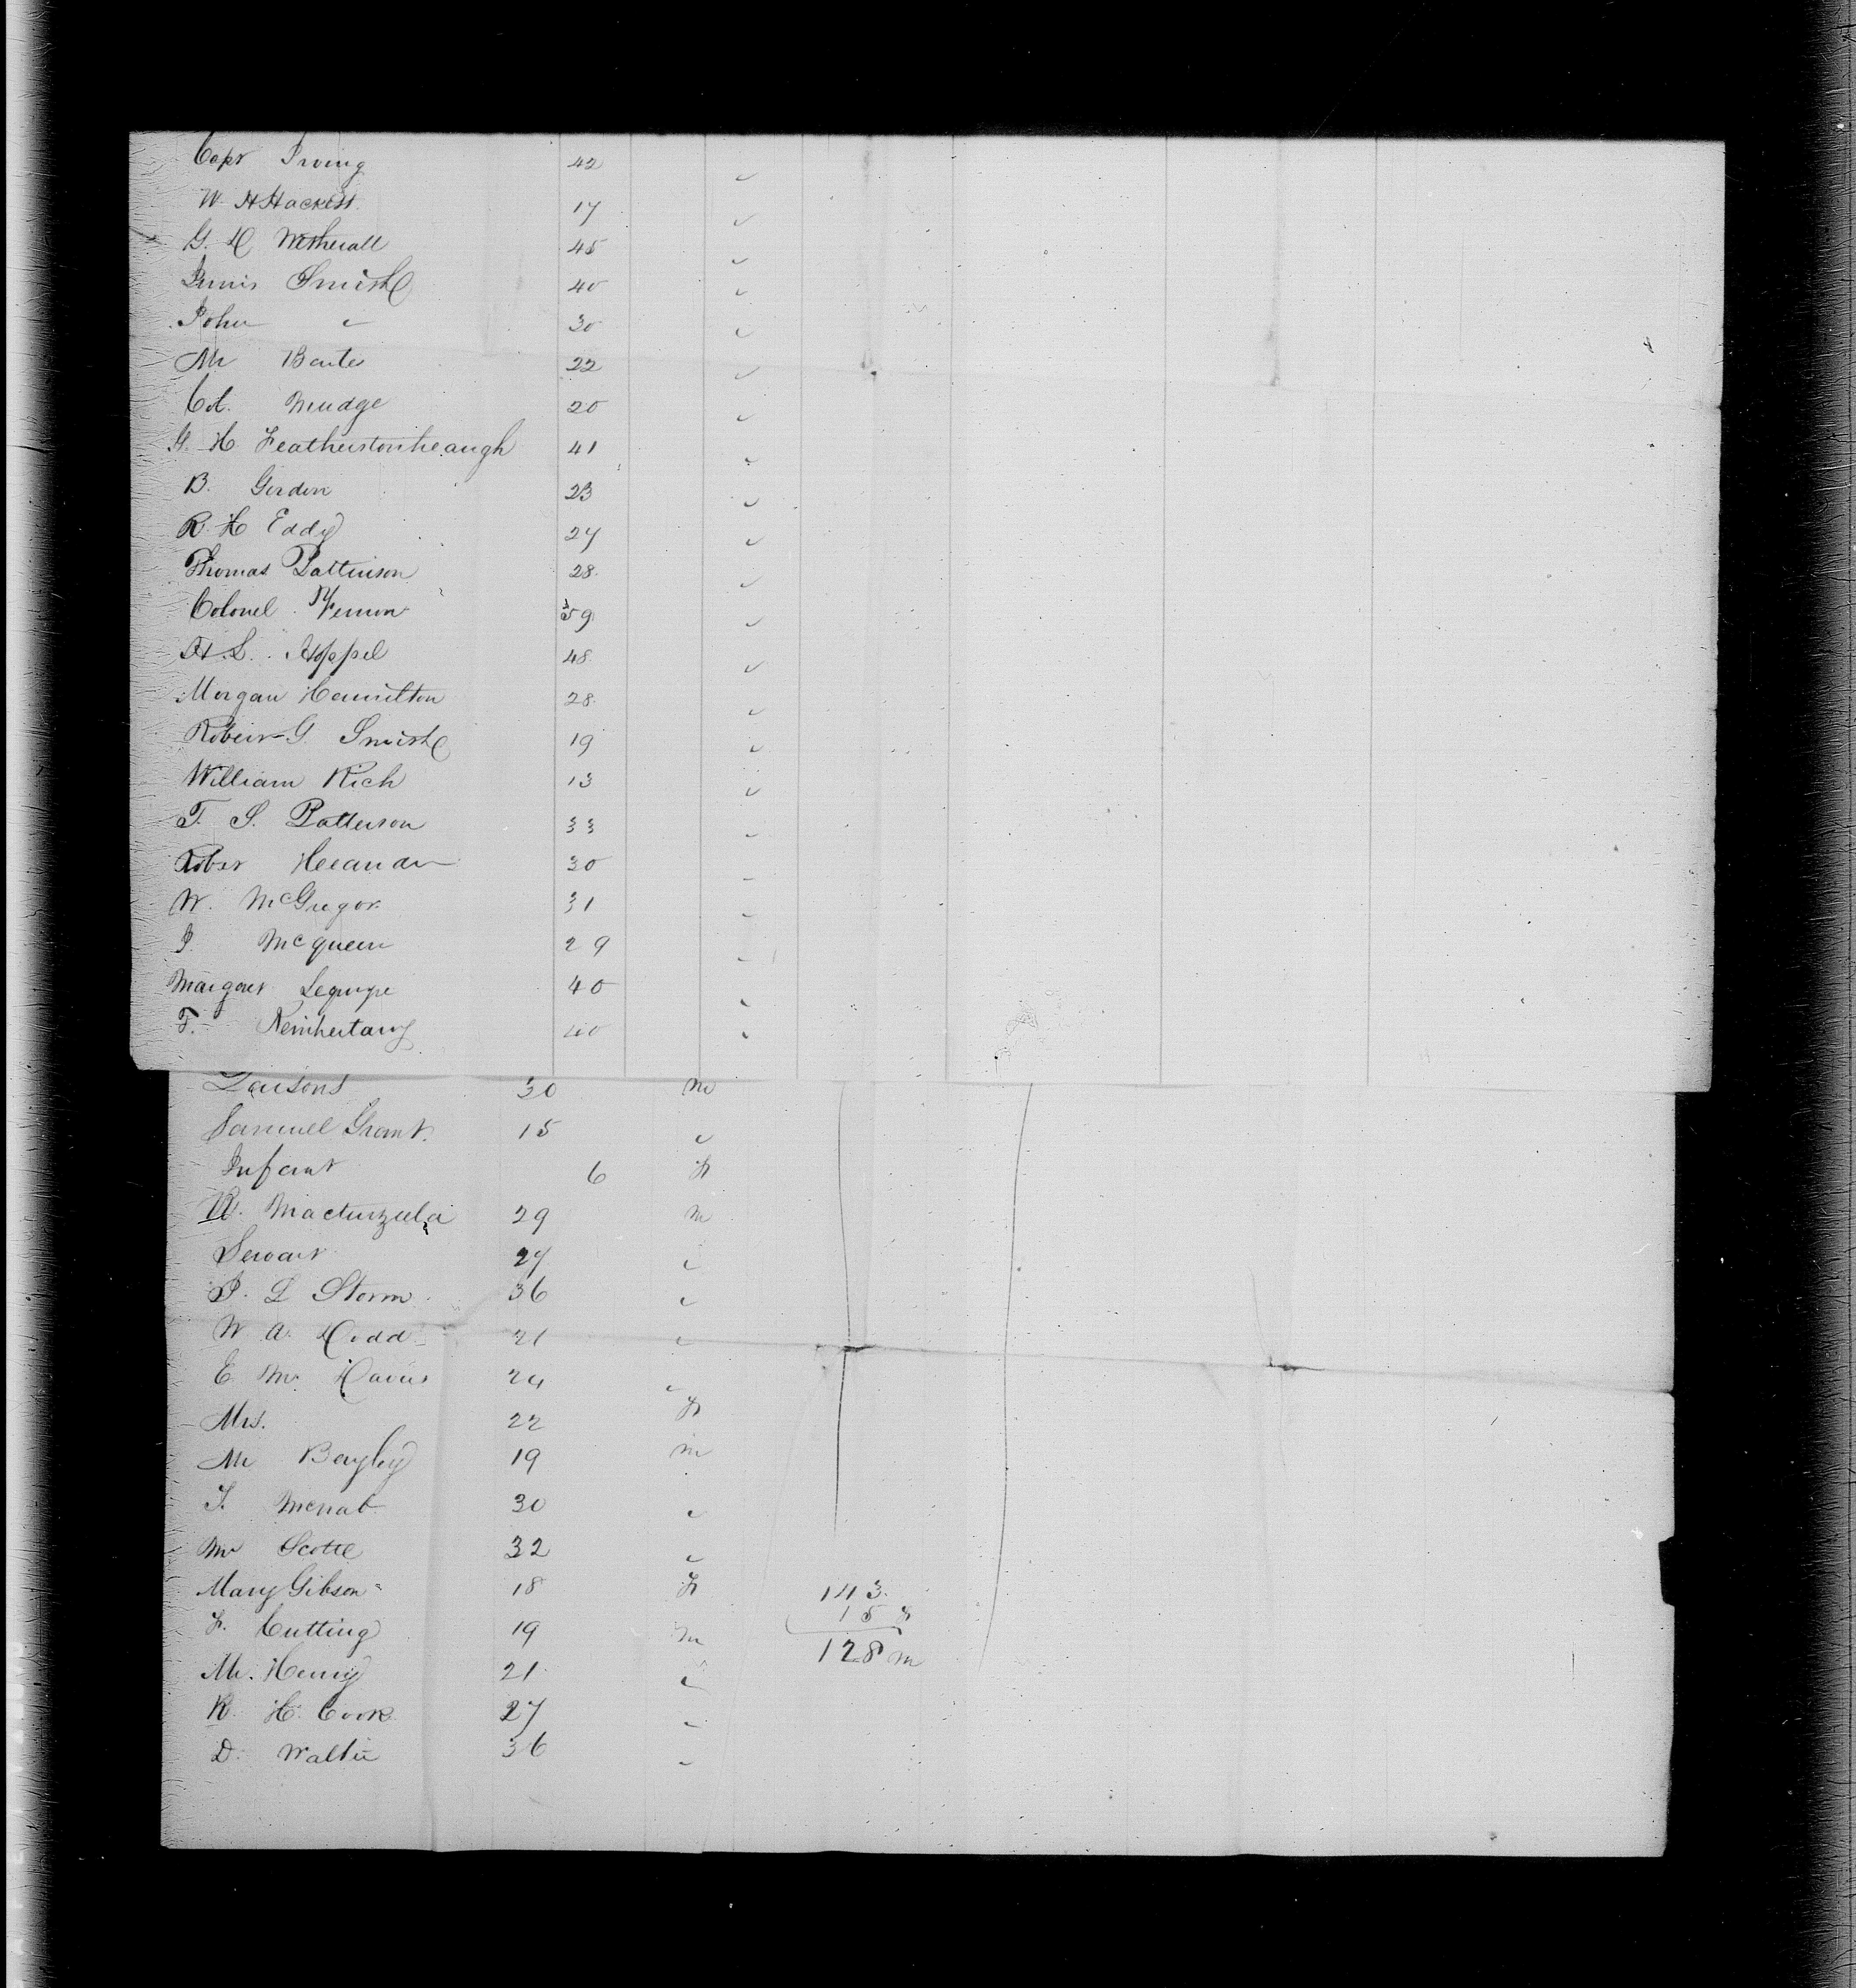 Capt Irving 42 "
W H Hackett 17 "
G. D Witherall 45 "
Junis Smith 40 "
John " 30 "
Mr Bentes 22 "
Col. Mudge 20 "
G. H Featherstonheaugh 41 "
B. Gordon 23 "
R. H Eddy 27 "
Thomas Pattinson 28 "
Colonel Vernon 59 "
H. S. Hoppel 48 "
Morgan Hamilton 28 "
Robert G Smith 19 "
William Rich 13 "
T. S. Patterson 33 "
Rober 30 "
W. McGregor 31 "
J. Mcqueen 29 "
Margaret 40 "
T. 40 "
30 m
Samuel Grant. 15 "
Infant 6 f
29 m
Servant 27 "
J. L Storm 36 "
W A. Dodd 21 "
E. M. Davis 24 "
Mrs. 22 f
Mr Bayley 19 m
J. McNab 30 "
Mr Scotte 32 "
Mary Gibson 18 f
F. Cutting 19 m
Mr. Henry 21 "
R. H. Cook 27 "
D. Walter 36 "
143
15 f
128 m